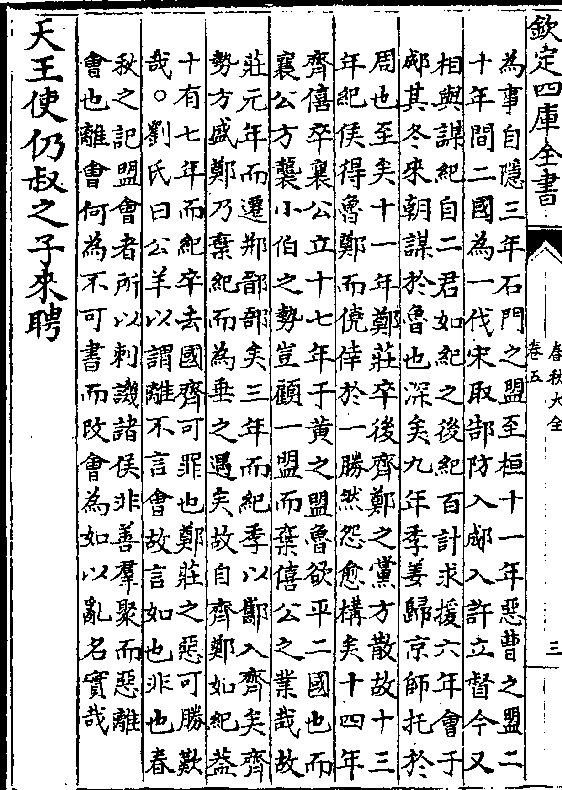 欽定四庫全書
春秋大全
卷五
三
為事自隱三年石門之盟至桓十一年惡曹之盟二
十年間二國為一代宋取郜防入郕入許立督今又
相與謀紀自二君如紀之後紀百計求援六年會于
郕其冬來朝謀於魯也深矣九年季姜歸京師托於
周也至矣十一年鄭莊卒後齊鄭之黨方散故十三
年紀侯得魯鄭而僥倖於一勝然怨愈構矣十四年
齊僖卒襄公立十七年于黃之盟魯欲平二國也而
襄公方襲小伯之勢豈顧一盟而棄僖公之業哉故
莊元年而遷郱鄑郚矣三年而紀季以酅入齊矣齊
勢方盛鄭乃棄紀而為垂之遇矣故自齊鄭如紀葢
十有七年而紀卒去國齊可罪也鄭莊之惡可勝歎
哉○劉氏曰公羊以謂離不言會故言如也非也春
秋之記盟會者所以刺譏諸侯非善羣聚而惡離
會也離會何為不可書而改會為如以亂名實哉
天王使仍叔之子來聘